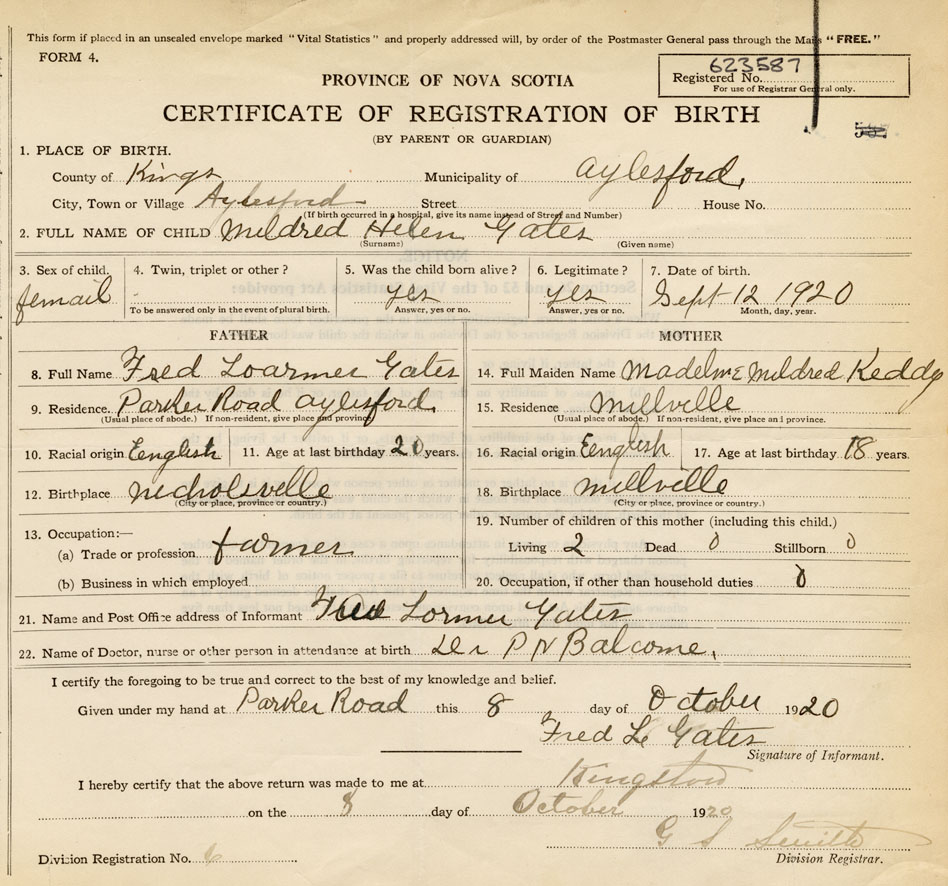 This form if placed in an unsealed envelope marked "Vital Statistics" and properly addressed will, by order of the Postmaster General pass through the Mails "FREE."
FORM 4.
623587
Registered No.
For use of Registrar General only.
PROVINCE OF NOVA SCOTIA
CERTIFICATE OF REGISTRATION OF BIRTH
(BY PARENT OR GUARDIAN)
1. PLACE OF BIRTH.
County of Kings Municipality of aylesford.
City, Town or Village Aylesford Street House No.
(If birth occurred in a hospital, give its name instead of Street and Number)
2. FULL NAME OF CHILD Mildred Helen Gates
(Surname) (Given name)
3. Sex of child. 4. Twin, triplet or other? 5. Was the child born alive? 6. Legitimate? 7. Date of birth.
femail yes yes Sept 12 1920
To be answered only in the event of plural birth. Answer, yes or no. Answer, yes or no. Month, day, year.
FATHER MOTHER
8. Full Name Fred Loarmer Gates 14. Full Maiden Name Madeline Mildred Keddy
9. Residence. Parker Road aylesford. 15. Residence Millville
(Usual place of abode.) If non-resident, give place and province (Usual place of abode.) If non-resident, give place and province.
10. Racial origin Eenglish 11. Age at last birthday 20 years. 16. Racial origin Eenglish 17. Age at last birthday 18 years.
12. Birthplace nicholsvelle 18. Birthplace millville
(City or place, province or country.) (City or place, province or country.)
13. Occupation:— 19. Number of children of this mother (including this child.)
(a) Trade or profession farmer Living 2 Dead 0 Stillborn 0
(b) Business in which employed 20. Occupation, if other than household duties 0
21. Name and Post Office address of Informant Fred Lormer Gates
22. Name of Doctor, nurse or other person in attendance at birth P N Balcome.
I certify the foregoing to be true and correct to the best of my knowledge and belief.
Given under my hand at Parker Road this 8 day of October 1920
Fred L Gates
Signature of Informant.
I hereby certify that the above return was made to me at Kingston
on the 8 day of October 1920
G S
Division Registration No. 6 Division Registrar.